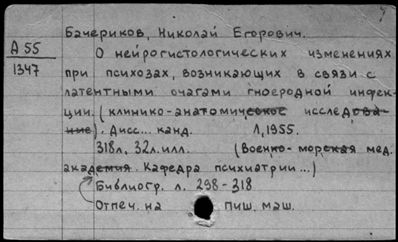 7
Бачериков, Николай Егорович.
А 55
1347
О нейрогистологических изменениях
при психозах, возникающих в связи с
латентными очагами гноеродной инфек-
ции. (клинико-анатомическое исследова-
ние). Дисс... канд. Л, 1955.
318л, 32л. илл. (Военно-морская мед.
академия. Кафедра психиатрии...)
Библиогр. л. 298-318
Отпеч. на пиш. маш.